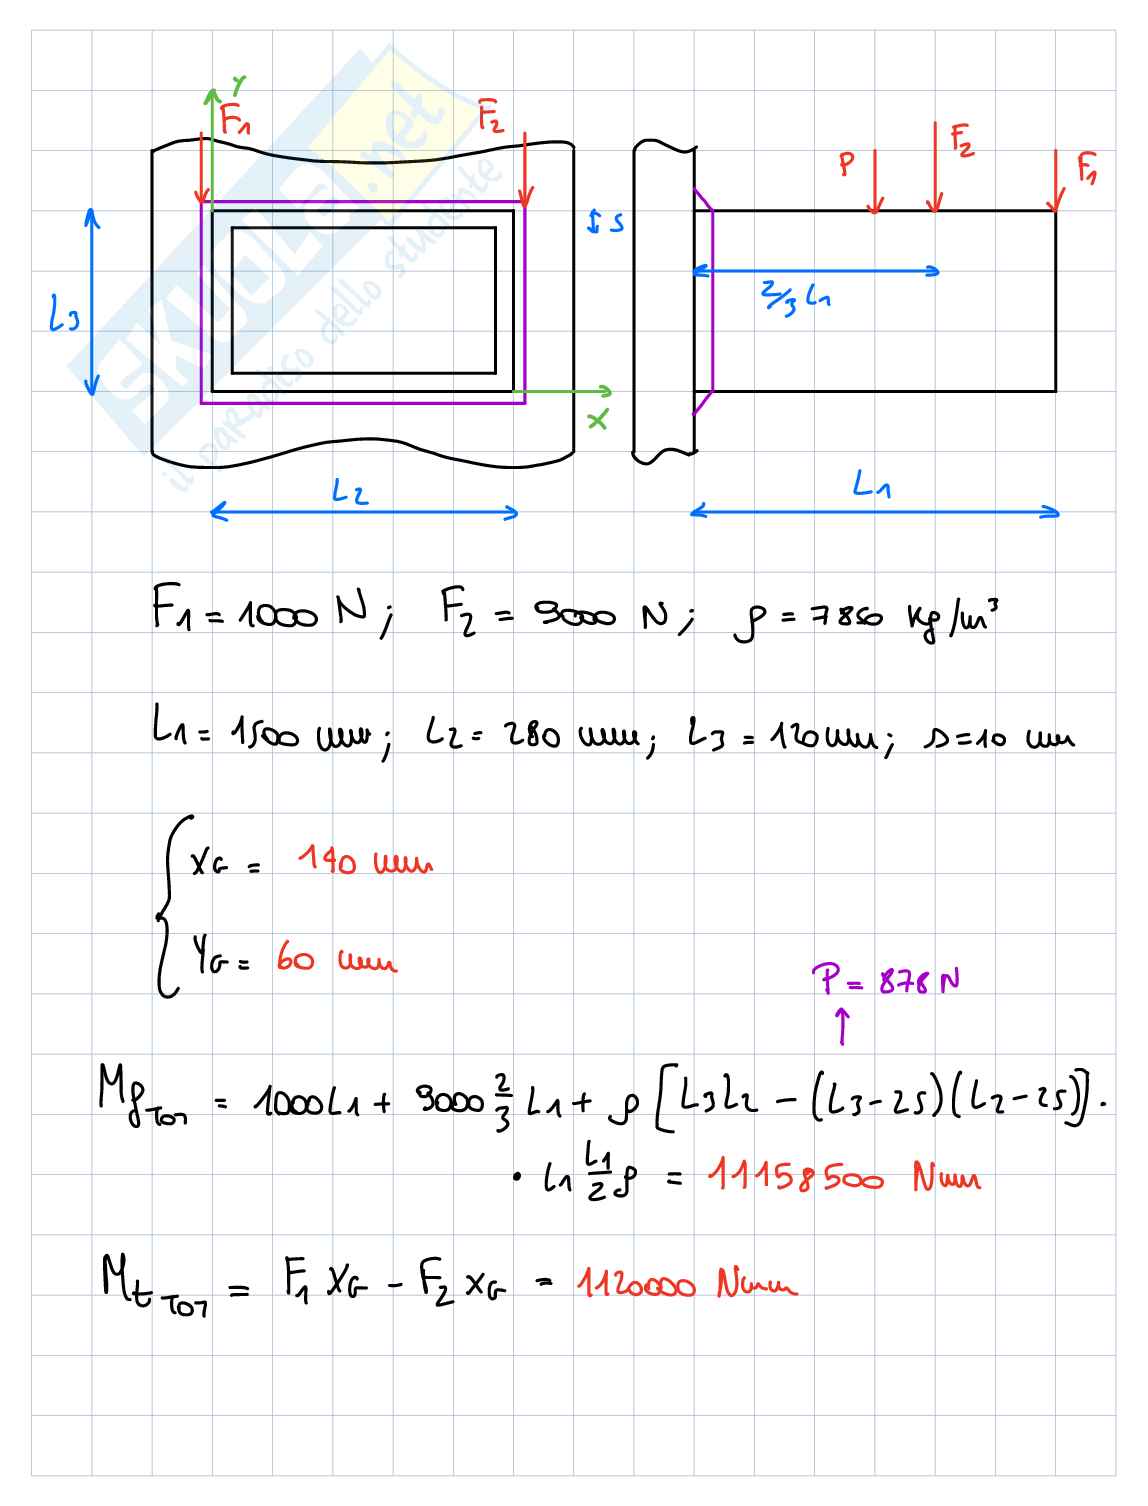 Y
F1 F2 P F2 F1
L3 S 2/3 L1
X
L2 L1
SKUOLA.net
il paradiso dello studente
F1 = 1000 N; F2 = 9000 N; ρ = 7850 kg/m³
L1 = 1500 mm; L2 = 280 mm; L3 = 120 mm; s = 10 mm
XG = 140 mm
YG = 60 mm
P = 878 N
MfTOT = 1000L1 + 9000 2/3 L1 + ρ [L3L2 - (L3-2s)(L2-2s)] ·
· L1 L1/2 ρ = 11158500 Nmm
MtTOT = F1 XG - F2 XG = 1120000 Nmm